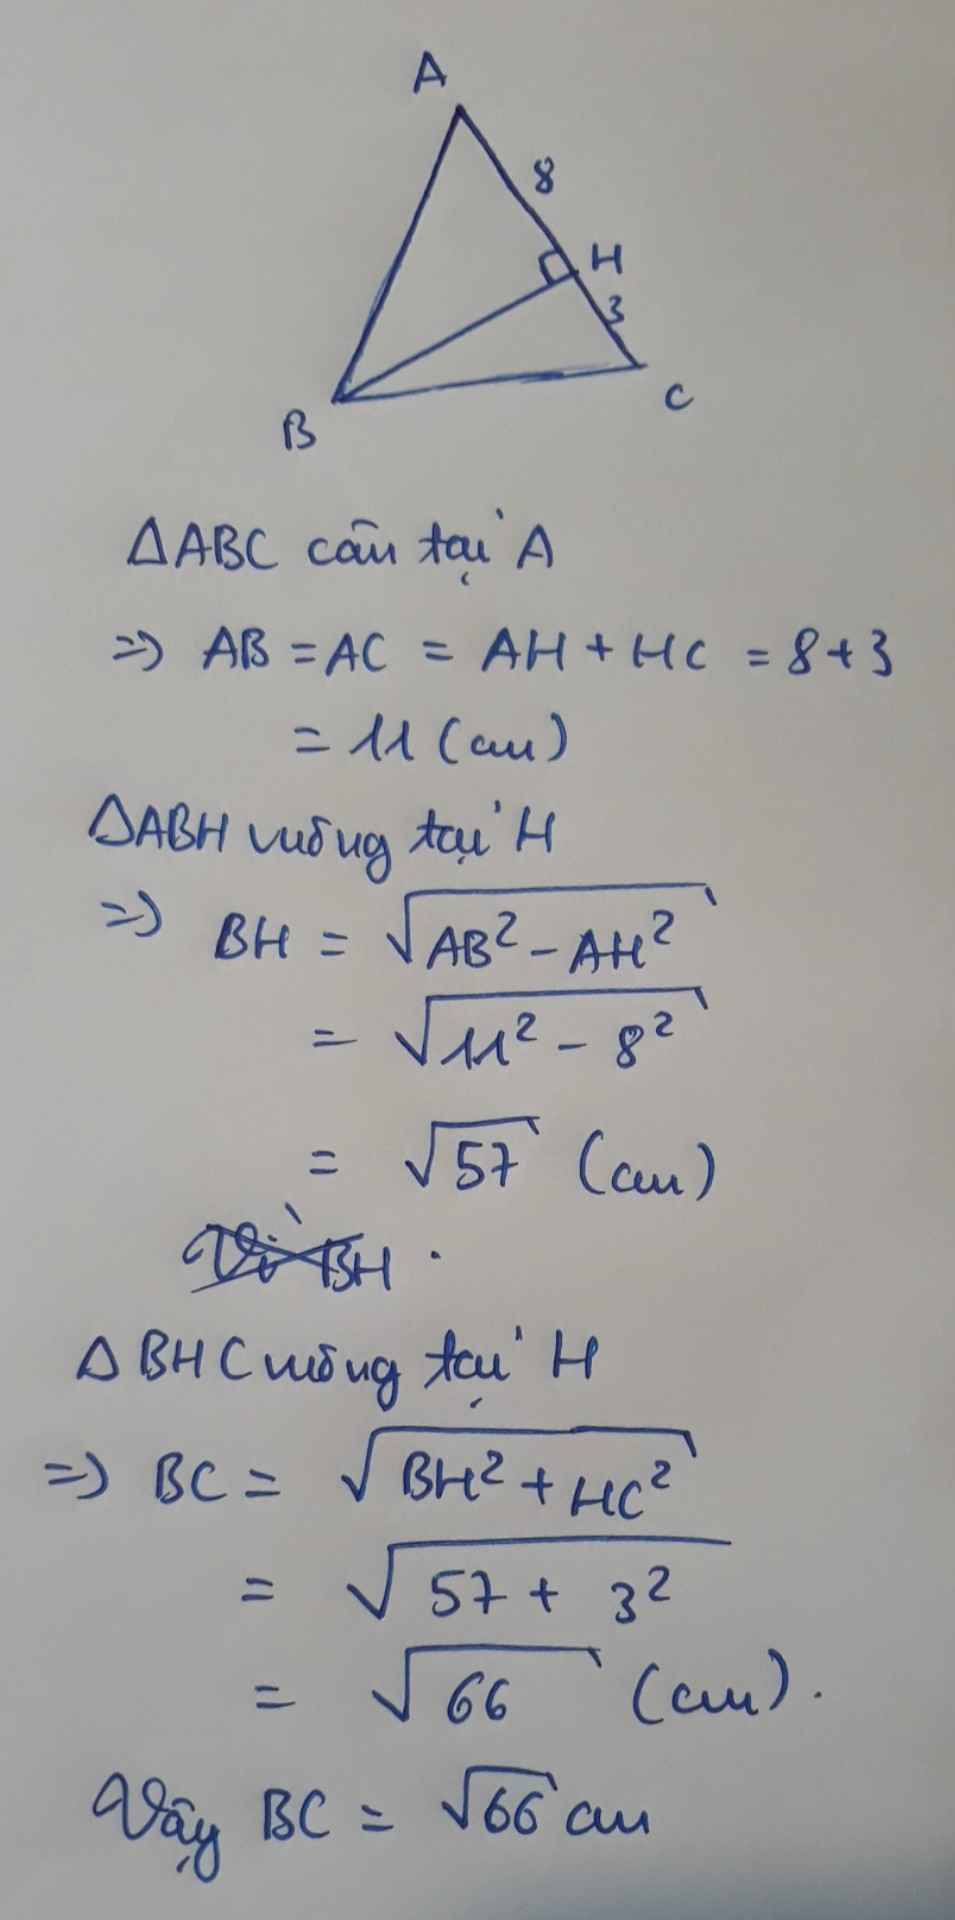 A
8
H
3
B
C
ΔABC cân tại A
=> AB = AC = AH + HC = 8+3
= 11 (cm)
ΔABH vuông tại H
=> BH = √(AB² - AH²)
= √(11² - 8²)
= √57 (cm)
Vì BH .
Δ BHC vuông tại H
=> BC = √(BH² + HC²)
= √(57 + 3²)
= √66 (cm).
Vậy BC = √66 cm